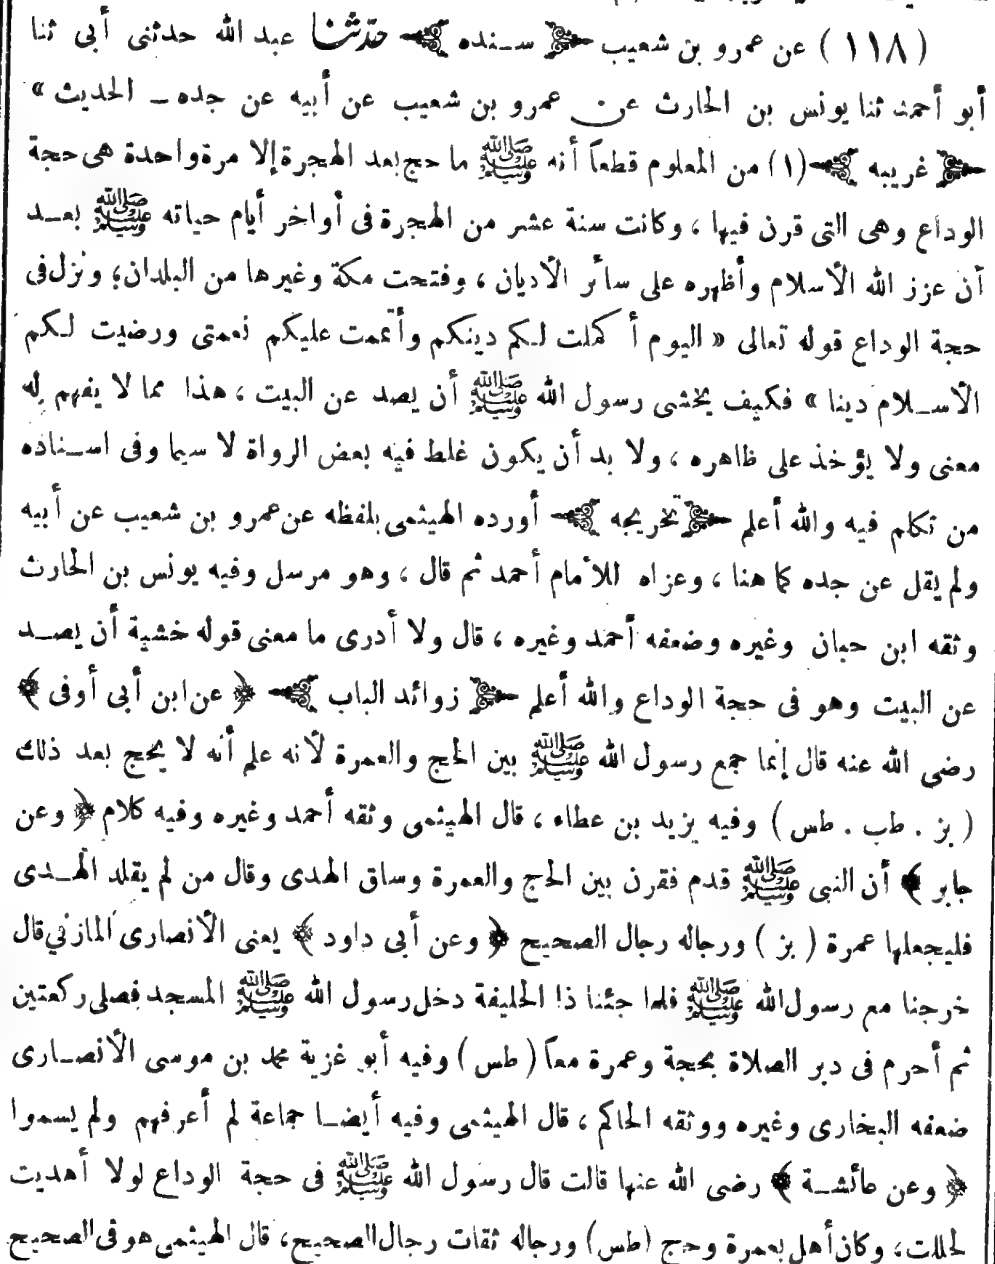 (١١٨) عن عمرو بن شعيب ﴿ سـنده ﴾ حدثنا عبد الله حدثنى أبى ثنا
أبو أحمد ثنا يونس بن الحارث عن عمرو بن شعيب عن أبيه عن جده ـ الحديث »
﴿ غريبه ﴾ (١) من المعلوم قطعاً أنه ﷺ ما حج بعد الهجرة إلا مرة واحدة هى حجة
الوداع وهى التى قرن فيها ، وكانت سنة عشر من الهجرة فى أواخر أيام حياته ﷺ بعـد
أن عزز الله الأسلام وأظهره على سائر الأديان ، وفتحت مكة وغيرها من البلدان؛ ونزل فى
حجة الوداع قوله تعالى « اليوم أكملت لـكم دينكم وأتممت عليكم نعمتى ورضيت لـكم
الأسـلام دينا » فكيف يخشى رسول الله ﷺ أن يصد عن البيت ، هذا مما لا يفهم له
معنى ولا يؤخذ على ظاهره ، ولا بد أن يكون غلط فيه بعض الرواة لا سيما وفى اسـناده
من تكلم فيه والله أعلم ﴿ تخريجه ﴾ أورده الهيثمى بلفظه عن عمرو بن شعيب عن أبيه
ولم يقل عن جده كما هنا ، وعزاه للأمام أحمد ثم قال ، وهو مرسل وفيه يونس بن الحارث
وثقه ابن حبان وغيره وضعفه أحمد وغيره ، قال ولا أدرى ما معنى قوله خشية أن يصـد
عن البيت وهو فى حجة الوداع والله أعلم ﴿ زوائد الباب ﴾ ﴿ عن ابن أبى أوفى ﴾
رضى الله عنه قال إنما جمع رسول الله ﷺ بين الحج والعمرة لأنه علم أنه لا يحج بعد ذلك
(بز . طب . طس) وفيه يزيد بن عطاء ، قال الهيثمى وثقه أحمد وغيره وفيه كلام ﴿ وعن
جابر ﴾ أن النبى ﷺ قدم فقرن بين الحج والعمرة وساق الهدى وقال من لم يقلد الهـدى
فليجعلها عمرة (بز) ورجاله رجال الصحيح ﴿ وعن أبى داود ﴾ يعنى الأنصارى المازني قال
خرجنا مع رسول الله ﷺ فلما جئنا ذا الحليفة دخل رسول الله ﷺ المسجد فصلى ركعتين
ثم أحرم فى دبر الصلاة بحجة وعمرة معاً (طس) وفيه أبو غزية محمد بن موسى الأنصـارى
ضعفه البخارى وغيره ووثقه الحاكم ، قال الهيثمى وفيه أيضـا جماعة لم أعرفهم ولم يسموا
﴿ وعن عائشـة ﴾ رضى الله عنها قالت قال رسول الله ﷺ فى حجة الوداع لولا أهديت
لحللت، وكان أهل بعمرة وحج (طس) ورجاله ثقات رجال الصحيح، قال الهيثمى هو فى الصحيح